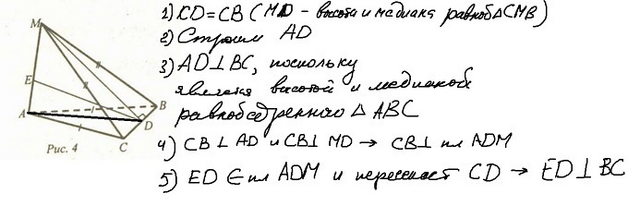 M
E
A
B
D
C
Рис. 4
1) CD=CB (MD - высота и медиана равноб △CMB)
2) Строим AD
3) AD⊥BC, поскольку
является высотой и медианой
равнобедренного △ ABC
4) CB ⊥ AD и CB⊥ MD → CB⊥ пл ADM
5) ED ∈ пл ADM и пересекает CD → ED⊥BC